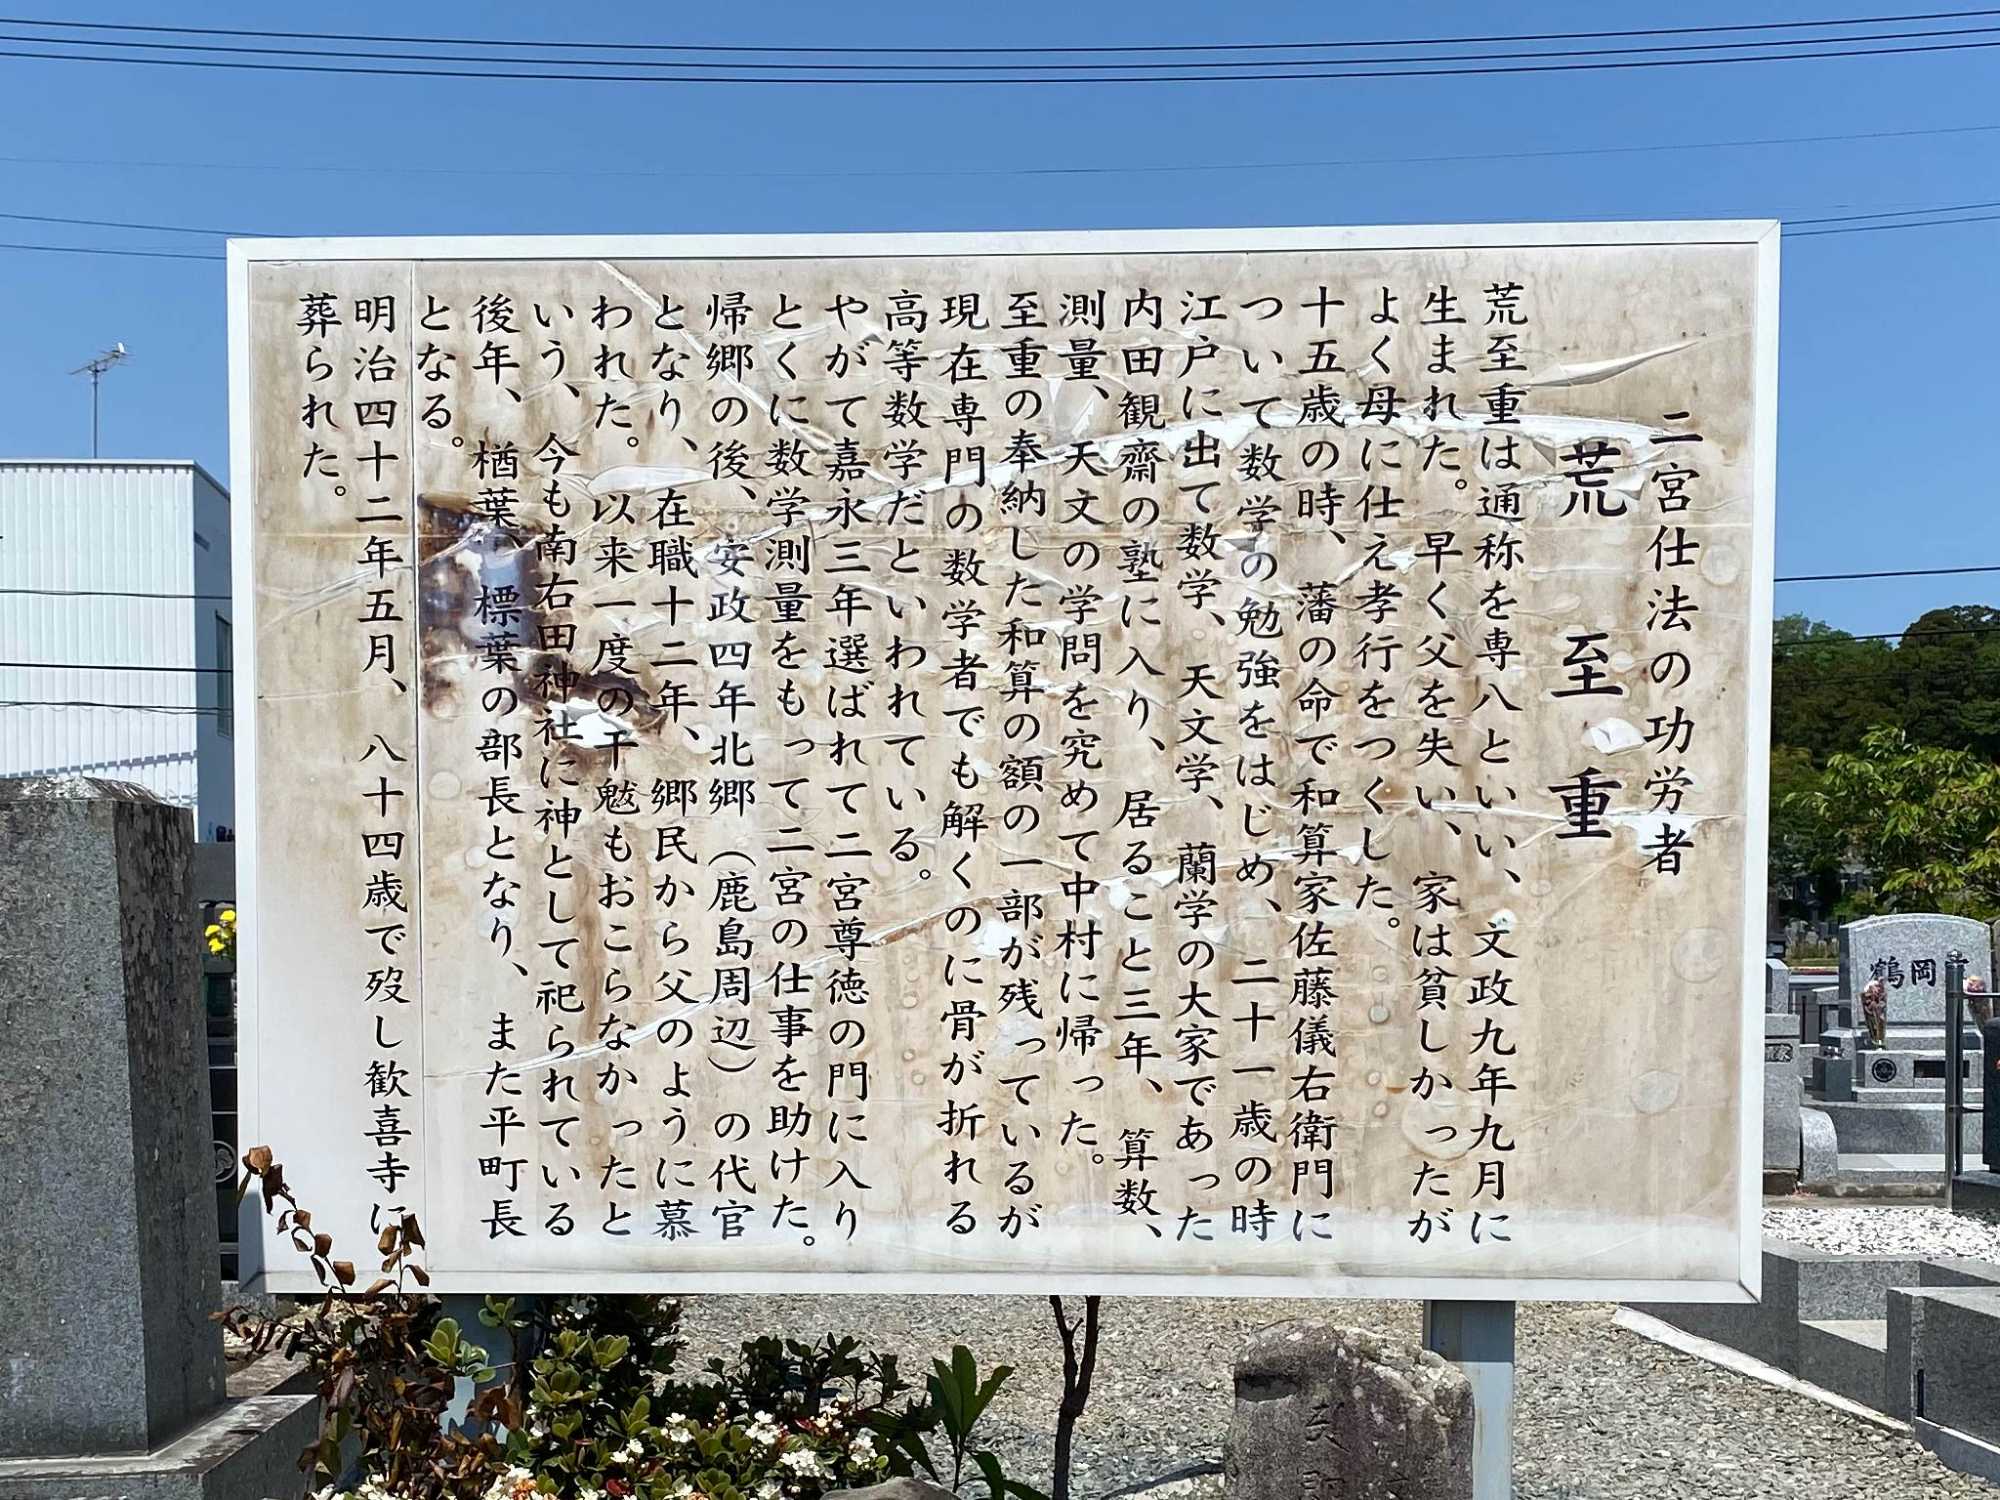 二宮仕法の功労者
荒 至 重
荒至重は通称を専八といい、文政九年九月に
生まれた。早く父を失い、家は貧しかったが
よく母に仕え孝行をつくした。
十五歳の時、藩の命で和算家佐藤儀右衛門に
ついて数学の勉強をはじめ、二十一歳の時
江戸に出て数学、天文学、蘭学の大家であった
内田観齋の塾に入り、居ること三年、算数、
測量、天文の学問を究めて中村に帰った。
至重の奉納した和算の額の一部が残っているが
現在専門の数学者でも解くのに骨が折れる
高等数学だといわれている。
やがて嘉永三年選ばれて二宮尊徳の門に入り
とくに数学測量をもって二宮の仕事を助けた。
帰郷の後、安政四年北郷（鹿島周辺）の代官
となり、在職十二年、郷民から父のように慕
われた。以来一度の干魃もおこらなかったと
いう、今も南右田神社に神として祀られている
後年、楢葉、標葉の部長となり、また平町長
となる。
明治四十二年五月、八十四歳で歿し歓喜寺に
葬られた。
鶴岡